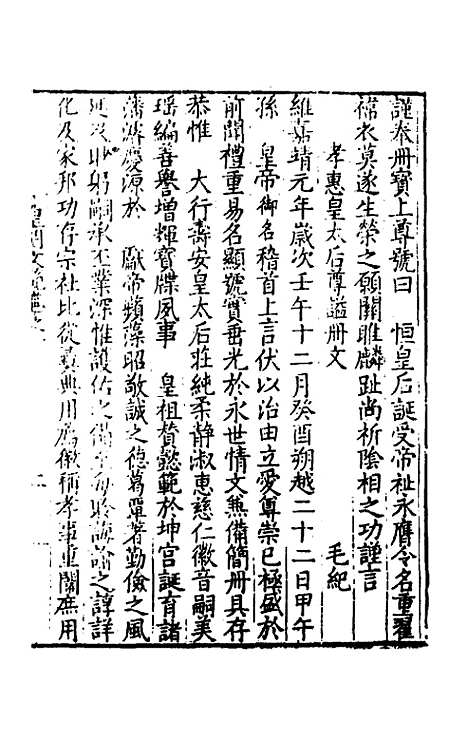 謹奉冊寶上尊號曰　恒皇后誕受帝祉永膺令名重翟
褘衣莫遂生榮之願關雎麟趾尚祈陰相之功謹言
孝惠皇太后尊謚册文　毛紀
維嘉靖元年歲次壬午十二月癸酉朔越二十二日甲午
孫　皇帝御名稽首上言伏以治由立愛尊崇已極盛於
前聞禮重易名顯號貴垂光於永世情文無備簡冊具存
恭惟　大行壽安皇太后莊純柔静淑惠慈仁徽音嗣美
瑶編善譽增輝寶牒夙事　皇祖贊懿範於坤宮誕育諸
藩濬慶源於　獻帝蘋藻昭敬誠之德葛覃著勤儉之風
延及眇躬嗣承丕業深惟護佑之備至每聆誨諭之諄詳
化及家邦功存宗社比從彝典用薦徽稱孝事重闈庶用
皇明文
二